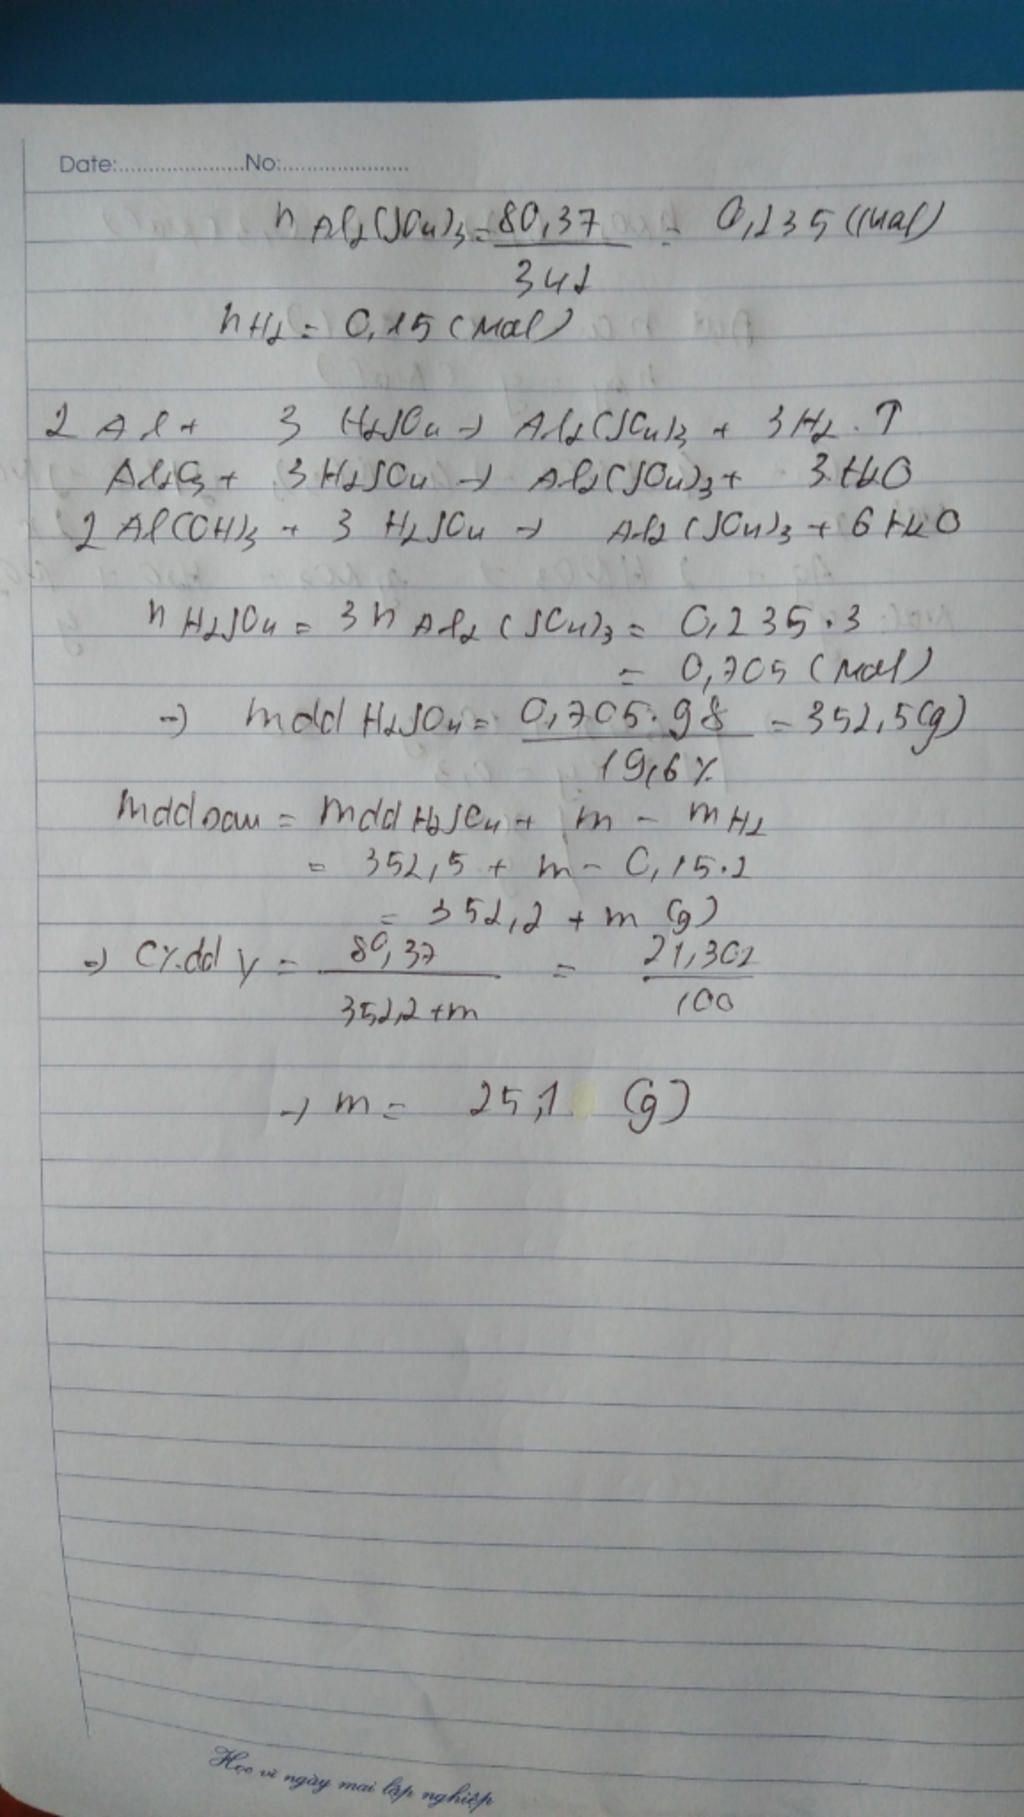 Date:......................No:......................
n Al2(SO4)3 = 80,37 / 342 = 0,235 (mol)
nH2 = 0,15 (mol)
2 Al + 3 H2SO4 → Al2(SO4)3 + 3H2 ↑
Al2O3 + 3H2SO4 → Al2(SO4)3 + 3H2O
2 Al(OH)3 + 3 H2SO4 → Al2(SO4)3 + 6H2O
n H2SO4 = 3n Al2(SO4)3 = 0,235.3
= 0,705 (mol)
→ mdd H2SO4 = 0,705.98 / 19,6% = 352,5(g)
mdd sau = mdd H2SO4 + m - mH2
= 352,5 + m - 0,15.2
= 352,2 + m (g)
→ C%dd Y = 80,37 / 352,2+m = 21,302 / 100
→ m = 25,1 (g)
Học vì ngày mai lập nghiệp